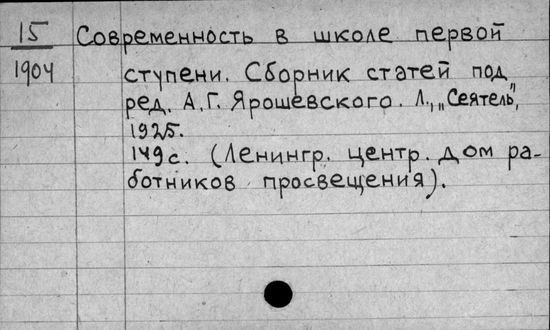 15
1904
Современность в школе первой
ступени. Сборник статей под
ред. А.Г. Ярошевского. Л., „Сеятель",
1925.
149 с. (Ленингр. центр. дом ра-
ботников просвещения).